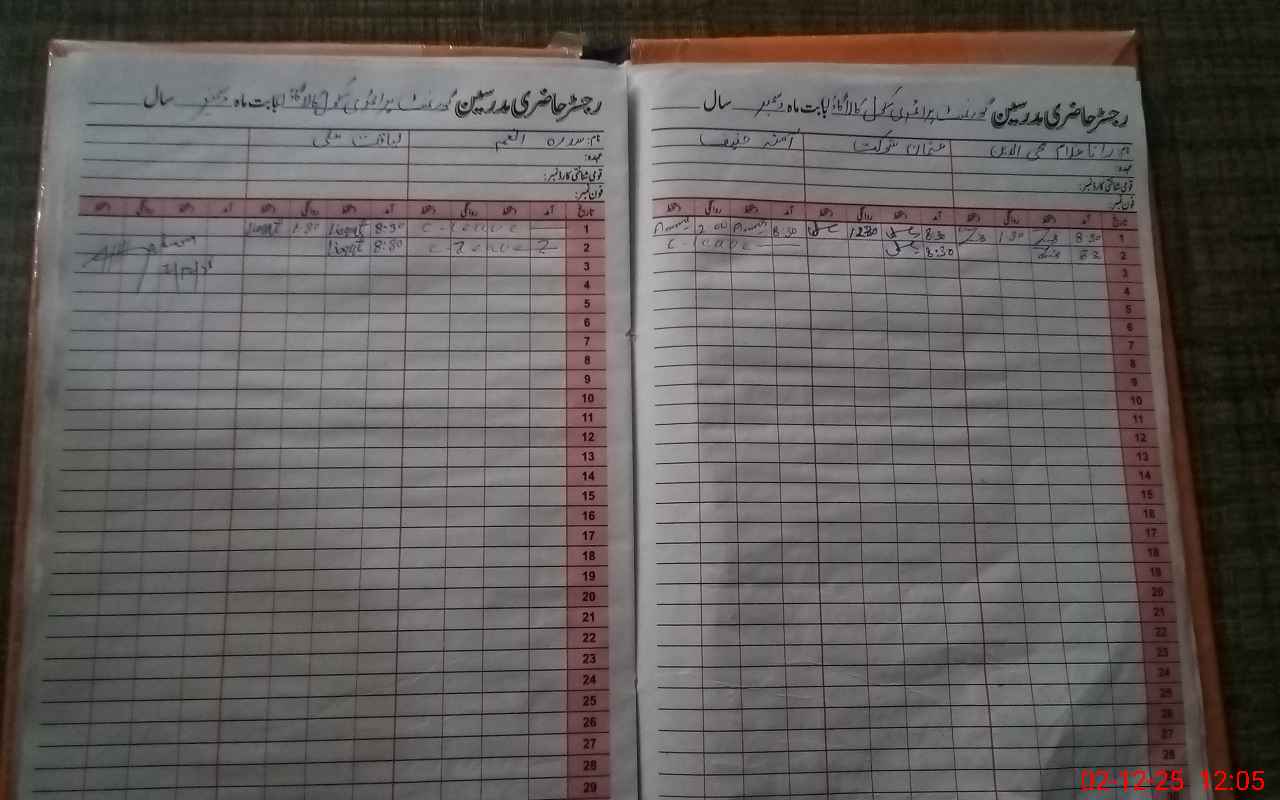 رجسٹر حاضری مدرسین گورنمنٹ پرائمری سکول بابت ماہ دسمبر سال
نام: رانا غلام محی الدین عثمان شوکت آمنہ حنیف
عہدہ:
قومی شناختی کارڈ نمبر:
فون نمبر:
تاریخ آمد دستخط روانگی دستخط آمد دستخط روانگی دستخط آمد دستخط روانگی دستخط
1 8:30 1:30 8:30 12:30 8:30 2:00
2 8:30 c-leave
3
4
5
6
7
8
9
10
11
12
13
14
15
16
17
18
19
20
21
22
23
24
25
26
27
28
رجسٹر حاضری مدرسین گورنمنٹ پرائمری سکول بابت ماہ دسمبر سال
نام: سدرہ لیاقت علی
عہدہ:
قومی شناختی کارڈ نمبر:
فون نمبر:
تاریخ آمد دستخط روانگی دستخط آمد دستخط روانگی دستخط آمد دستخط روانگی دستخط
1 c-leave 8:30 Liaqat 1:30 Liaqat
2 c-leave 2 8:30 Liaqat
3
4
5
6
7
8
9
10
11
12
13
14
15
16
17
18
19
20
21
22
23
24
25
26
27
28
29
02-12-25 12:05